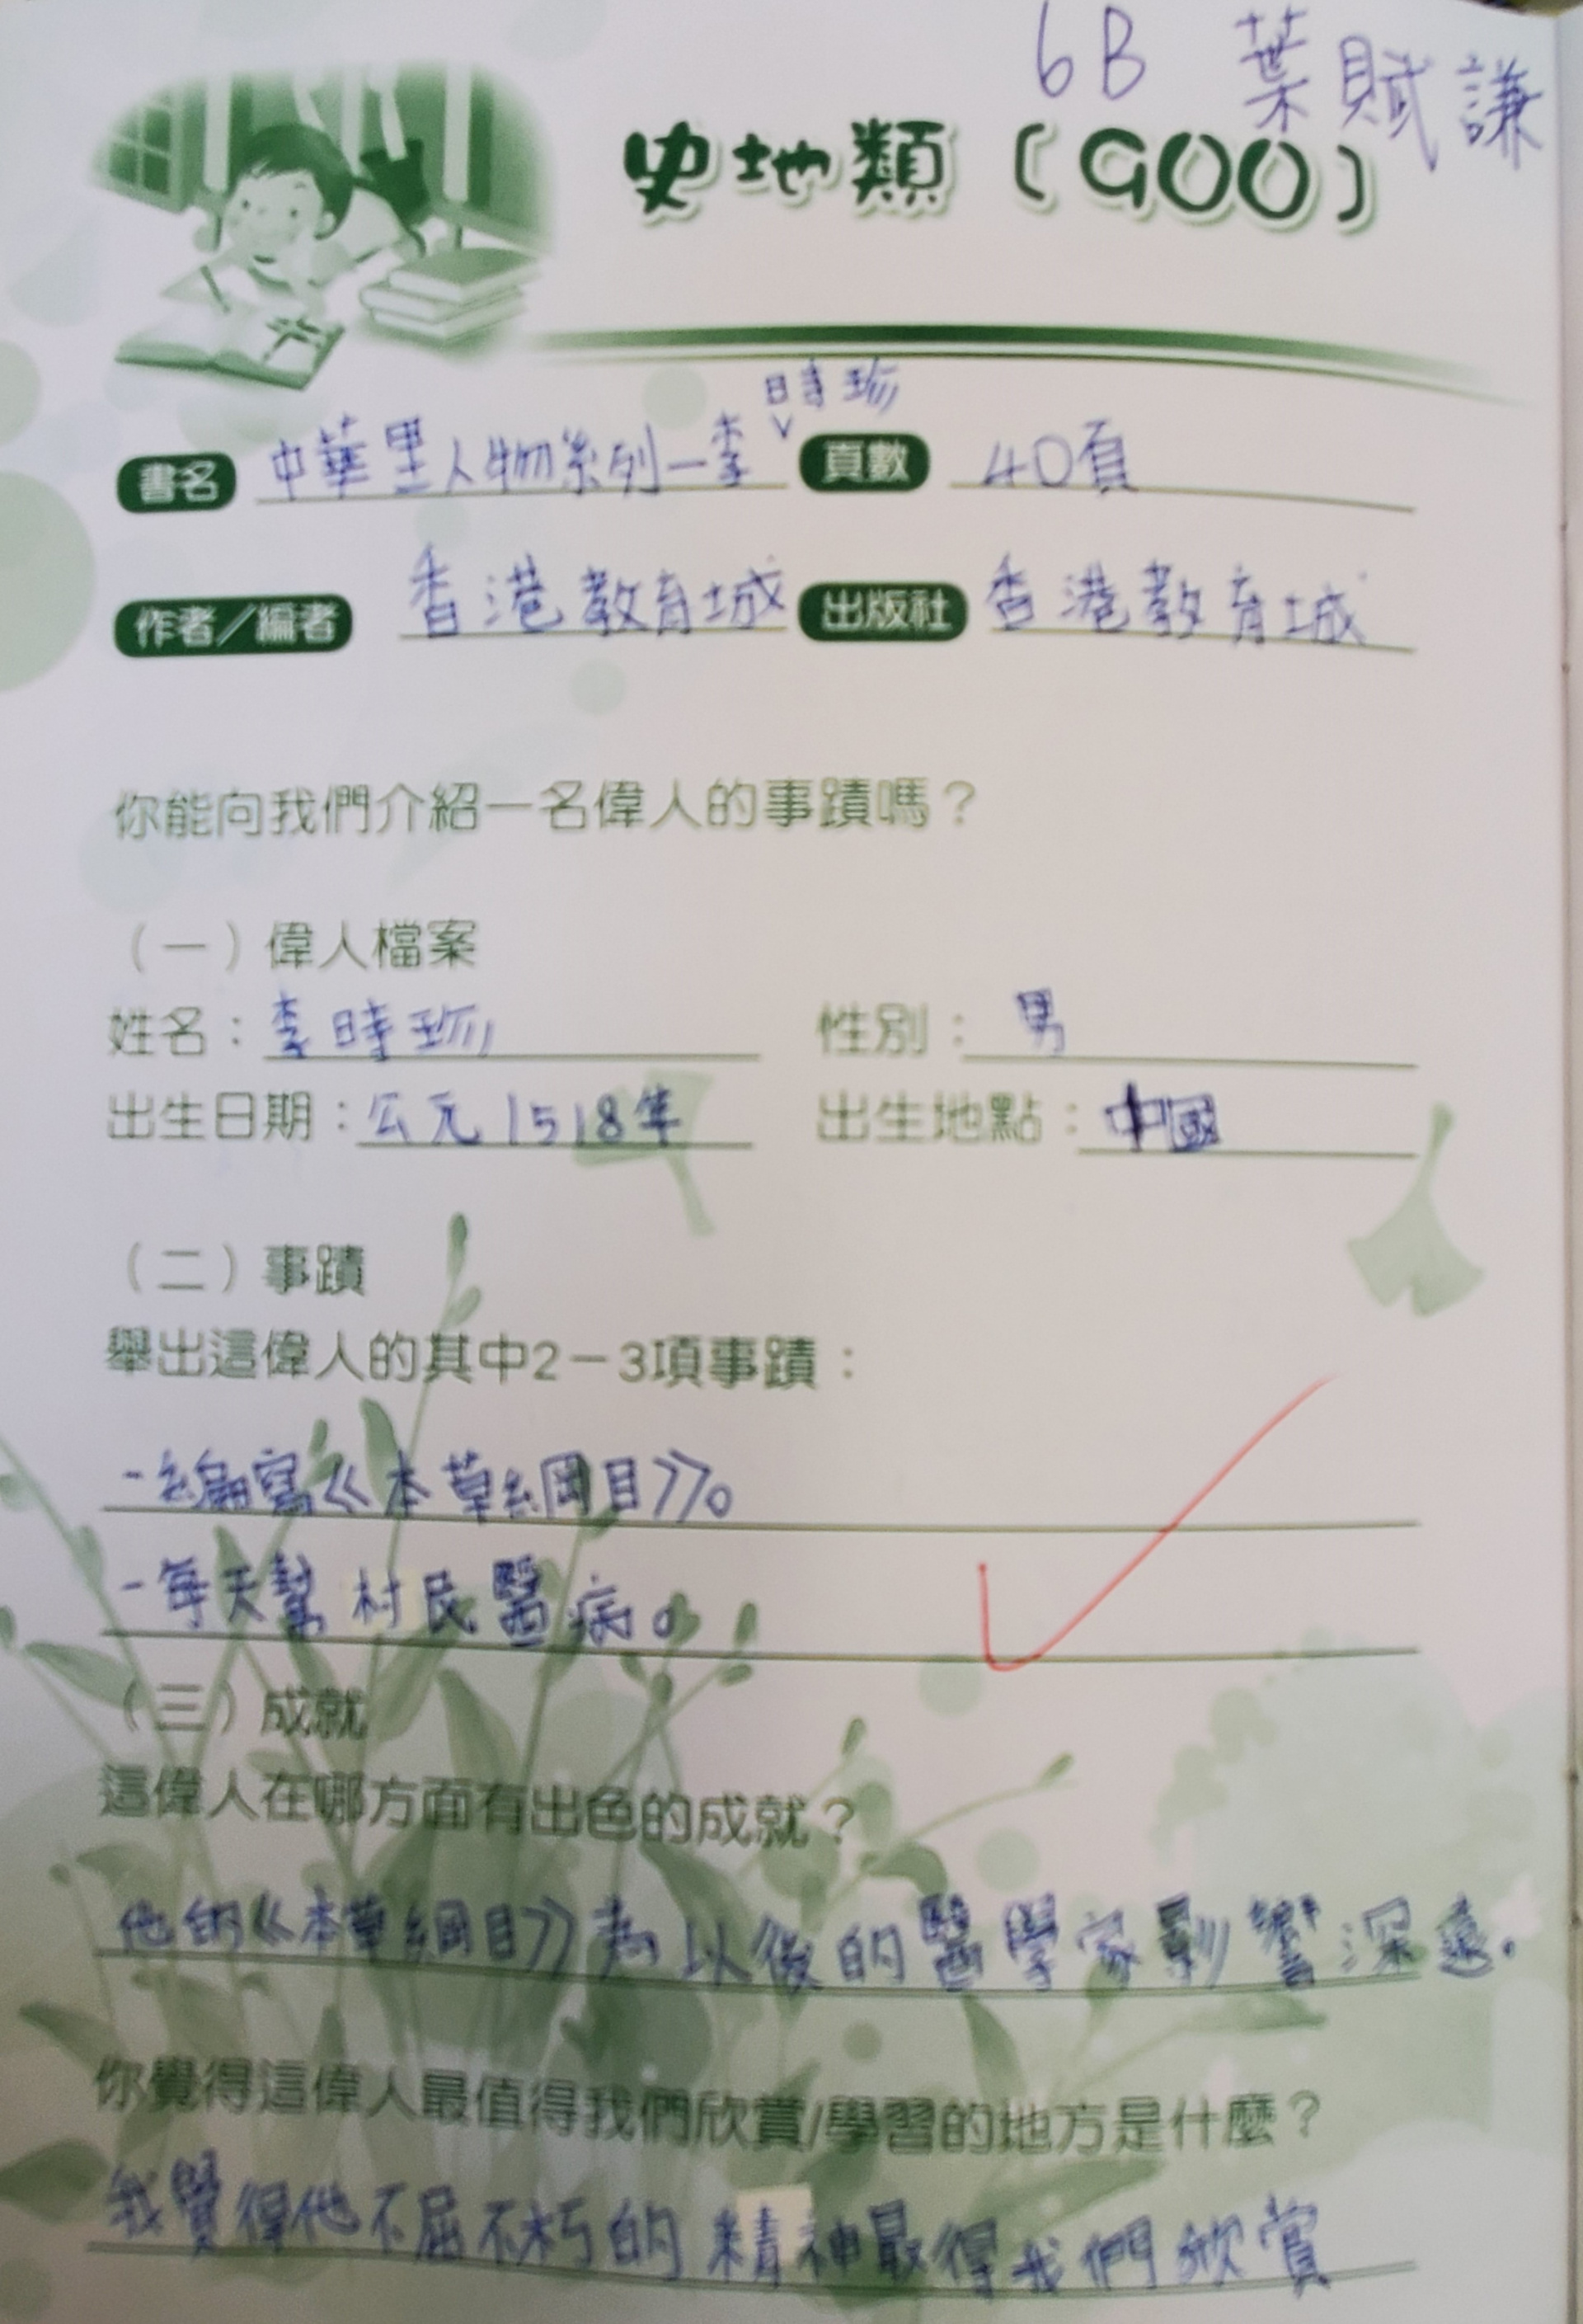 6B 葉賦謙
史地類〔900〕
時珍
書名 中華里人物系列—李 頁數 40頁
作者／編者 香港教育城 出版社 香港教育城
你能向我們介紹一名偉人的事蹟嗎？
（一）偉人檔案
姓名：李時珍 性別：男
出生日期：公元1518年 出生地點：中國
（二）事蹟
舉出這偉人的其中2－3項事蹟：
-編寫《本草綱目》。
-每天幫村民醫病。
（三）成就
這偉人在哪方面有出色的成就？
他的《本草綱目》為以後的醫學家影響深遠。
你覺得這偉人最值得我們欣賞/學習的地方是什麼？
我覺得他不屈不朽的精神最得我們欣賞